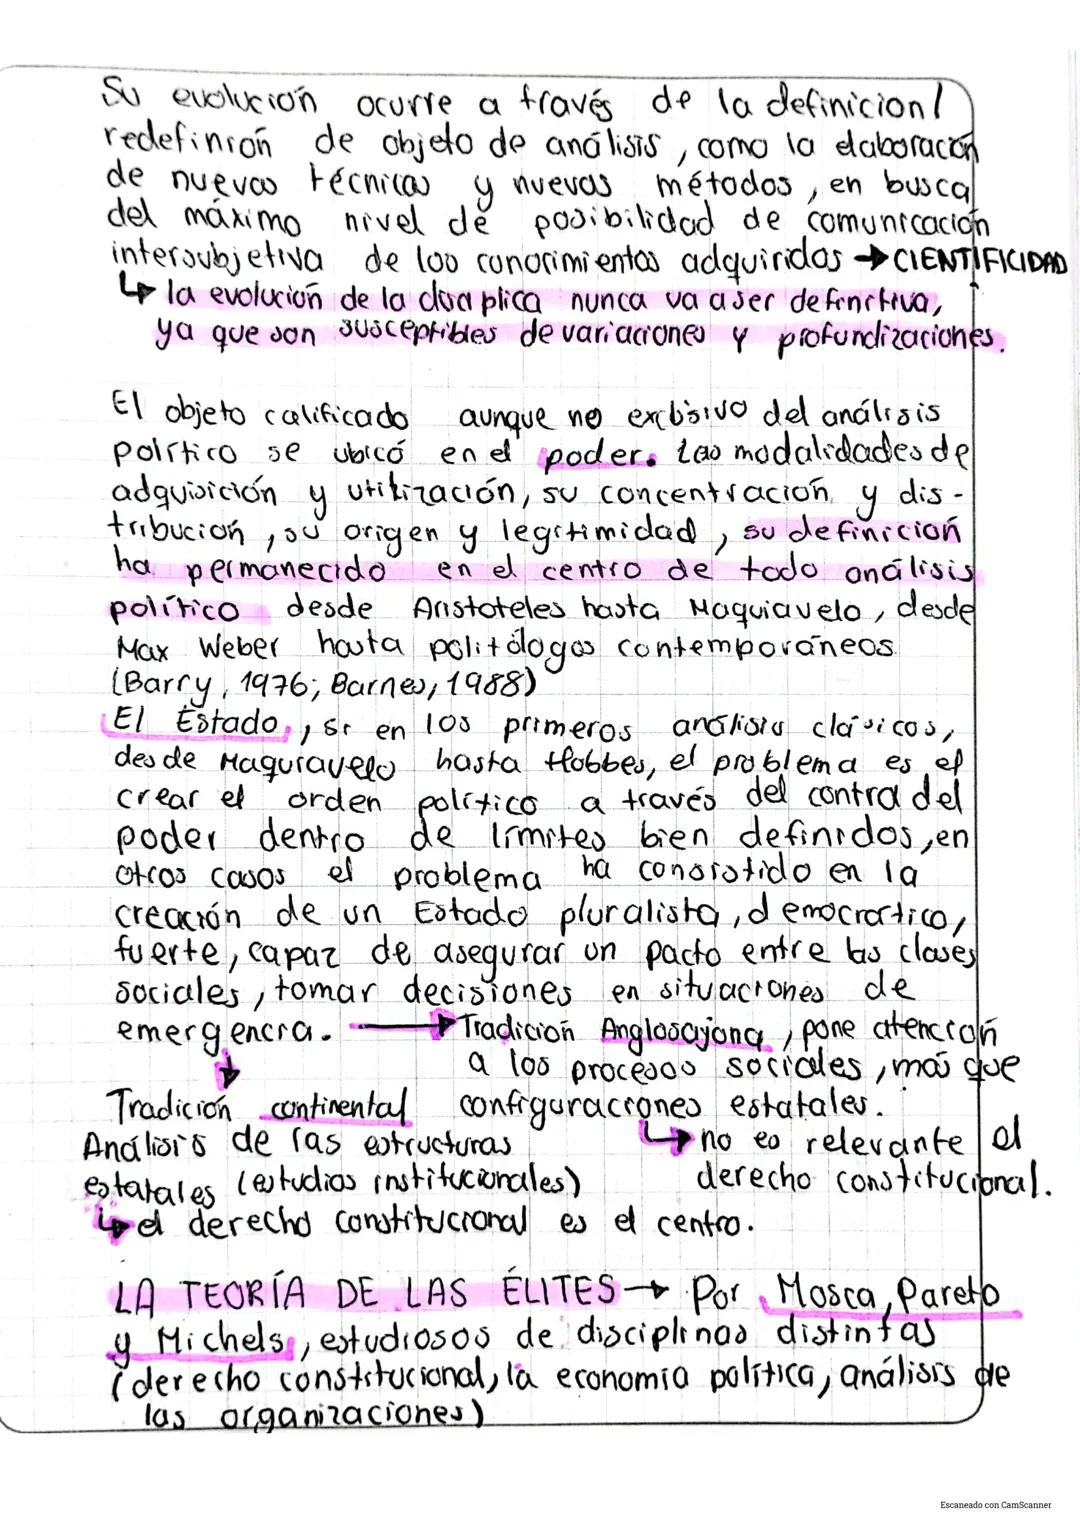 Su evolución ocurre a través de la definicion/
redefinión de objeto de análisis, como la elaboración
de nuevas técnicas y nuevas métodos, en busca
del máximo nivel de posibilidad de comunicación
intersubjetiva de los conocimientos adquiridos → CIENTIFICIDAD
↳ la evolución de la disciplica nunca va a ser definitiva,
ya que son susceptibles de variaciones y profundizaciones.
El objeto calificado aunque no exclusivo del análisis
político se ubicó en el poder. Las modalidades de
adquisición y utilización, su concentración y dis-
tribución, su origen y legitimidad, su definición
ha permanecido en el centro de todo análisis
político desde Aristoteles hasta Maquiavelo, desde
Max Weber hasta politólogos contemporáneos
(Barry, 1976; Barnes, 1988)
El Estado, si en los primeros análisis clásicos,
desde Maquiavelo hasta Hobbes, el problema es el
crear el orden político a través del contra del
poder dentro de límites bien definidos, en
otros casos el problema ha consistido en la
creación de un Estado pluralista, democrático,
fuerte, capaz de asegurar un pacto entre las clases
sociales, tomar decisiones en situaciones de
emergencia. → Tradición Anglosajona, pone atención
a los procesos sociales, más que
Tradición continental configuraciones estatales.
Análisis de las estructuras ↳ no es relevante el
estatales (estudios institucionales) derecho constitucional.
↳ el derecho constitucional es el centro.
LA TEORÍA DE LAS ÉLITES → Por Mosca, Pareto
y Michels, estudiosos de disciplinas distintas
(derecho constitucional, la economía política, análisis de
las organizaciones)
Escaneado con CamScanner